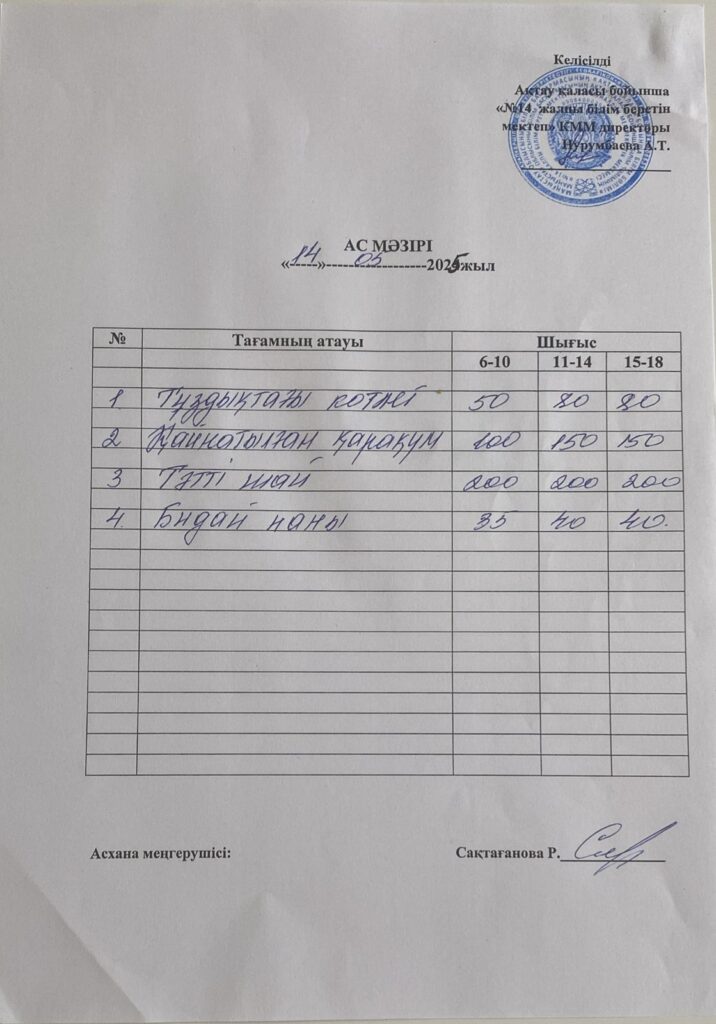 Келісілді
Ақтау қаласы бойынша
«№14 жалпы білім беретін
мектеп» КММ директоры
Нурумбаева А.Т.
АС МӘЗІРІ
«14» 05 2025 жыл
№ Тағамның атауы Шығыс
6-10 11-14 15-18
1 Тұздықтағы котлет 50 80 80
2 Қайнатылған қарақұм 100 150 150
3 Тәтті шай 200 200 200
4. Бидай наны 35 40 40.
Асхана меңгерушісі: Сақтағанова Р.